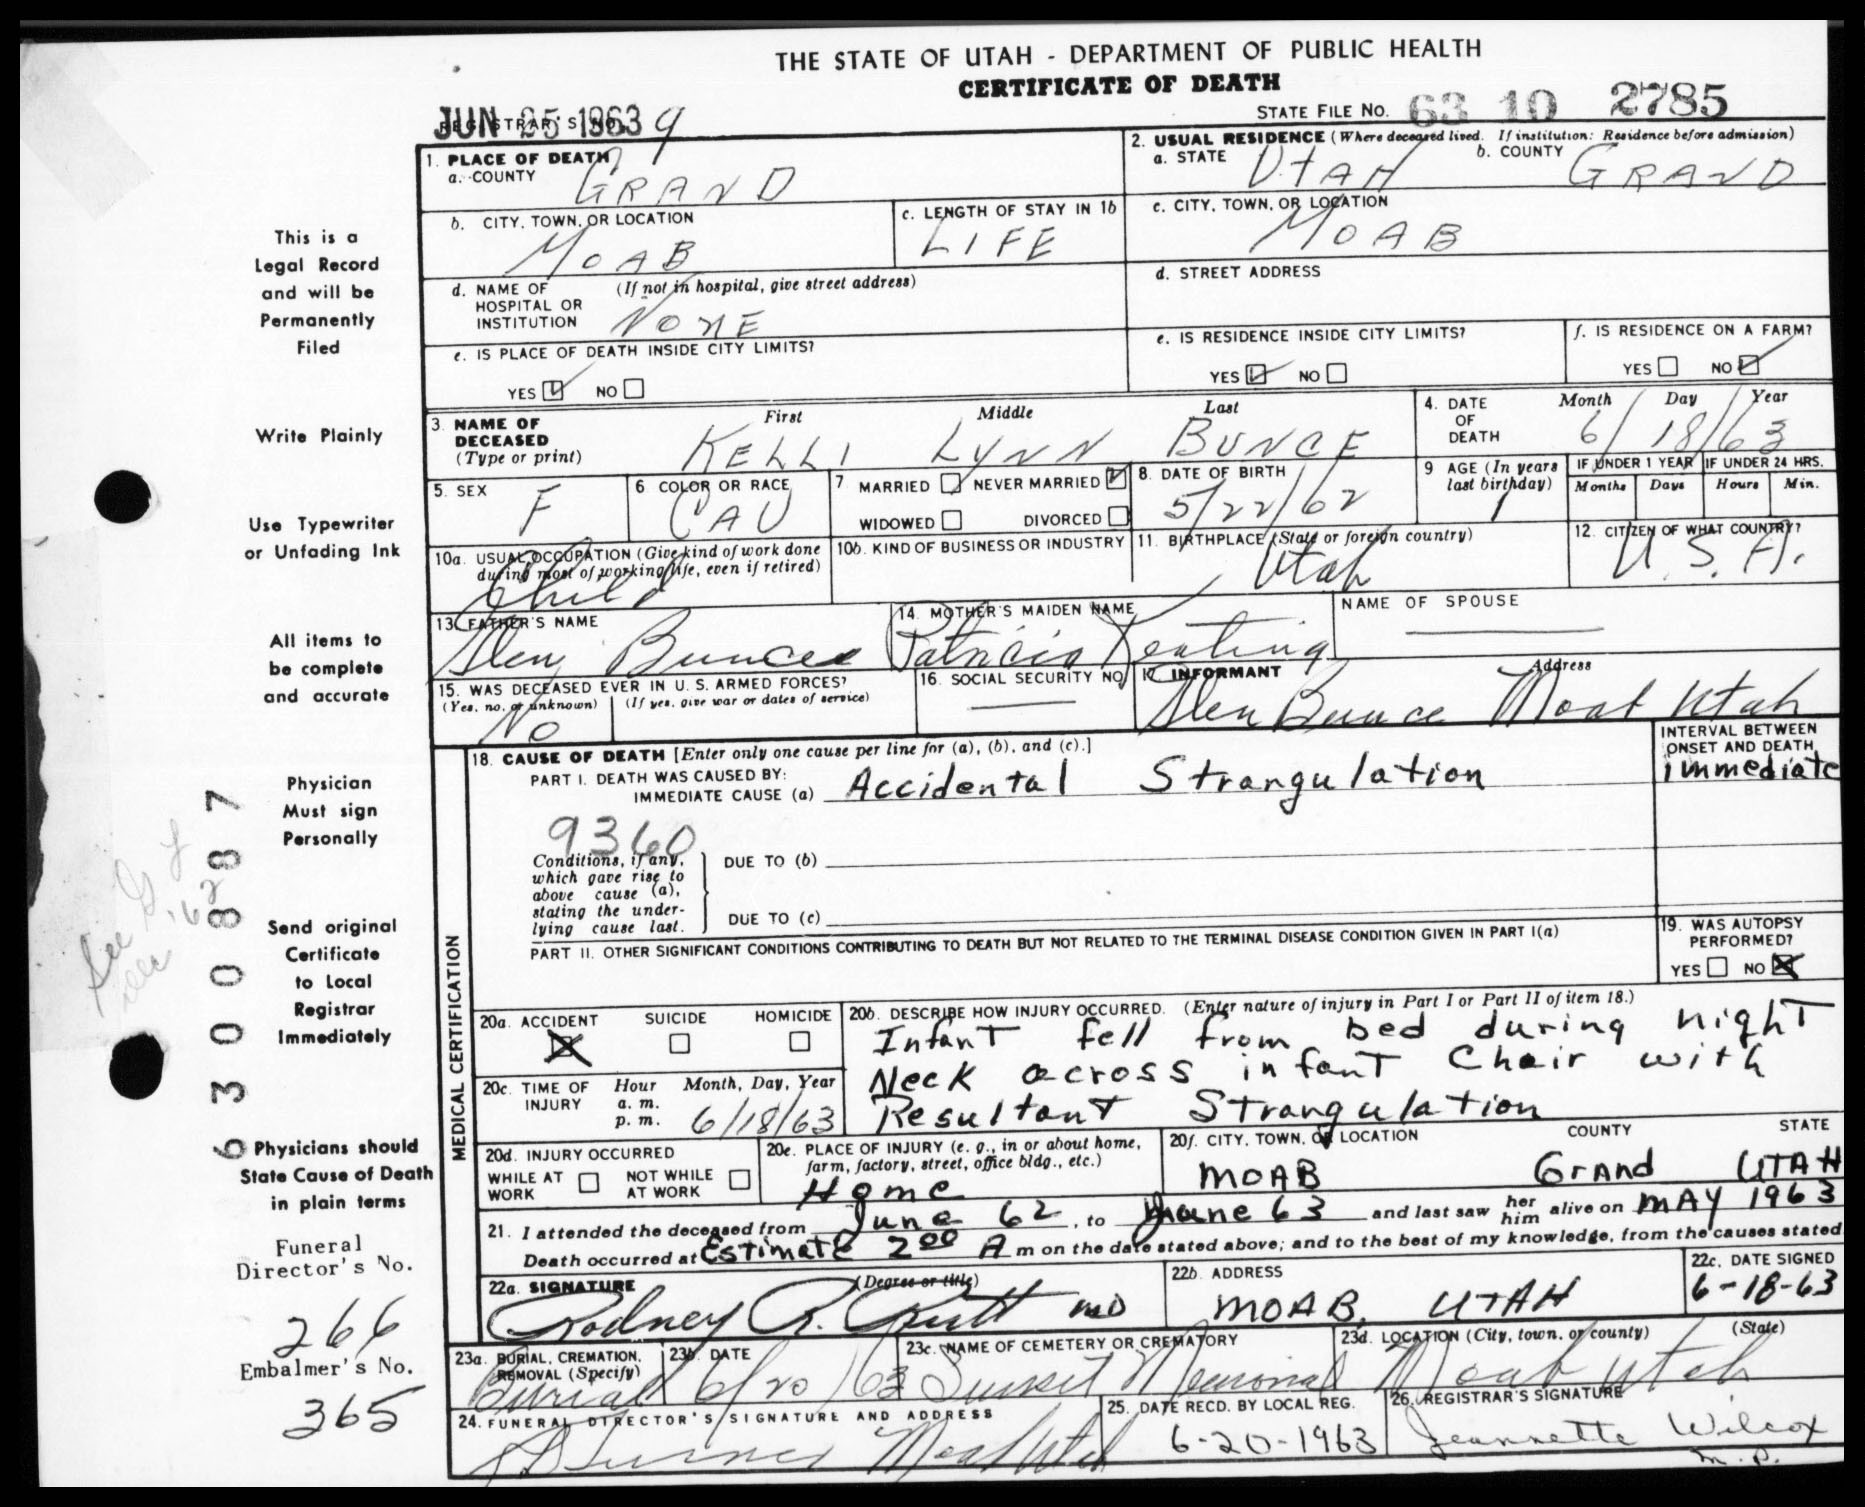 THE STATE OF UTAH - DEPARTMENT OF PUBLIC HEALTH
CERTIFICATE OF DEATH
JUN 25 1963
REGISTRAR'S NO. 9
STATE FILE NO. 63 10 2785
1. PLACE OF DEATH
a. COUNTY GRAND
2. USUAL RESIDENCE (Where deceased lived. If institution: Residence before admission)
a. STATE UTAH b. COUNTY GRAND
b. CITY, TOWN, OR LOCATION MOAB
c. LENGTH OF STAY IN 1b LIFE
c. CITY, TOWN, OR LOCATION MOAB
d. NAME OF HOSPITAL OR INSTITUTION (If not in hospital, give street address) NONE
d. STREET ADDRESS
e. IS PLACE OF DEATH INSIDE CITY LIMITS?
YES NO
e. IS RESIDENCE INSIDE CITY LIMITS?
YES NO
f. IS RESIDENCE ON A FARM?
YES NO
3. NAME OF DECEASED (Type or print)
First Middle Last
KELLI LYNN BUNCE
4. DATE OF DEATH Month Day Year
6/18/63
5. SEX F
6 COLOR OR RACE CAU
7 MARRIED NEVER MARRIED
WIDOWED DIVORCED
8. DATE OF BIRTH 5/22/62
9 AGE (In years last birthday) 1
IF UNDER 1 YEAR Months Days
IF UNDER 24 HRS. Hours Min.
10a. USUAL OCCUPATION (Give kind of work done during most of working life, even if retired) Child
10b. KIND OF BUSINESS OR INDUSTRY
11. BIRTHPLACE (State or foreign country) Utah
12. CITIZEN OF WHAT COUNTRY? U.S.A.
13. FATHER'S NAME Glen Bunce
14. MOTHER'S MAIDEN NAME Patricia Keating
NAME OF SPOUSE
15. WAS DECEASED EVER IN U. S. ARMED FORCES?
(Yes, no, or unknown) (If yes, give war or dates of service)
No
16. SOCIAL SECURITY NO.
17. INFORMANT Address
Glen Bunce Moab Utah
MEDICAL CERTIFICATION
18. CAUSE OF DEATH [Enter only one cause per line for (a), (b), and (c).]
PART I. DEATH WAS CAUSED BY:
IMMEDIATE CAUSE (a) Accidental Strangulation
INTERVAL BETWEEN ONSET AND DEATH
immediate
9360
Conditions, if any, which gave rise to above cause (a), stating the underlying cause last.
DUE TO (b)
DUE TO (c)
PART II. OTHER SIGNIFICANT CONDITIONS CONTRIBUTING TO DEATH BUT NOT RELATED TO THE TERMINAL DISEASE CONDITION GIVEN IN PART I(a)
19. WAS AUTOPSY PERFORMED?
YES NO
20a. ACCIDENT SUICIDE HOMICIDE
20b. DESCRIBE HOW INJURY OCCURRED. (Enter nature of injury in Part I or Part II of item 18.)
Infant fell from bed during night
Neck across infant Chair with
Resultant Strangulation
20c. TIME OF INJURY Hour Month, Day, Year
a. m.
p. m. 6/18/63
20d. INJURY OCCURRED
WHILE AT WORK NOT WHILE AT WORK
20e. PLACE OF INJURY (e. g., in or about home, farm, factory, street, office bldg., etc.)
Home
20f. CITY, TOWN, OR LOCATION COUNTY STATE
MOAB Grand UTAH
21. I attended the deceased from June 62, to June 63 and last saw her him alive on MAY 1963
Death occurred at Estimate 2 00 A m on the date stated above; and to the best of my knowledge, from the causes stated
22a. SIGNATURE (Degree or title)
Rodney R. MD
22b. ADDRESS
MOAB, UTAH
22c. DATE SIGNED
6-18-63
23a. BURIAL, CREMATION, REMOVAL (Specify) Burial
23b. DATE 6/20/63
23c. NAME OF CEMETERY OR CREMATORY Sunset Memorial
23d. LOCATION (City, town, or county) (State)
Moab Utah
24. FUNERAL DIRECTOR'S SIGNATURE AND ADDRESS
Turner Moab Utah
25. DATE RECD. BY LOCAL REG.
6-20-1963
26. REGISTRAR'S SIGNATURE
Jeannette Wilcox
This is a
Legal Record
and will be
Permanently
Filed
Write Plainly
Use Typewriter
or Unfading Ink
All items to
be complete
and accurate
Physician
Must sign
Personally
Send original
Certificate
to Local
Registrar
Immediately
Physicians should
State Cause of Death
in plain terms
Funeral
Director's No.
266
Embalmer's No.
365
6300887
See
'62